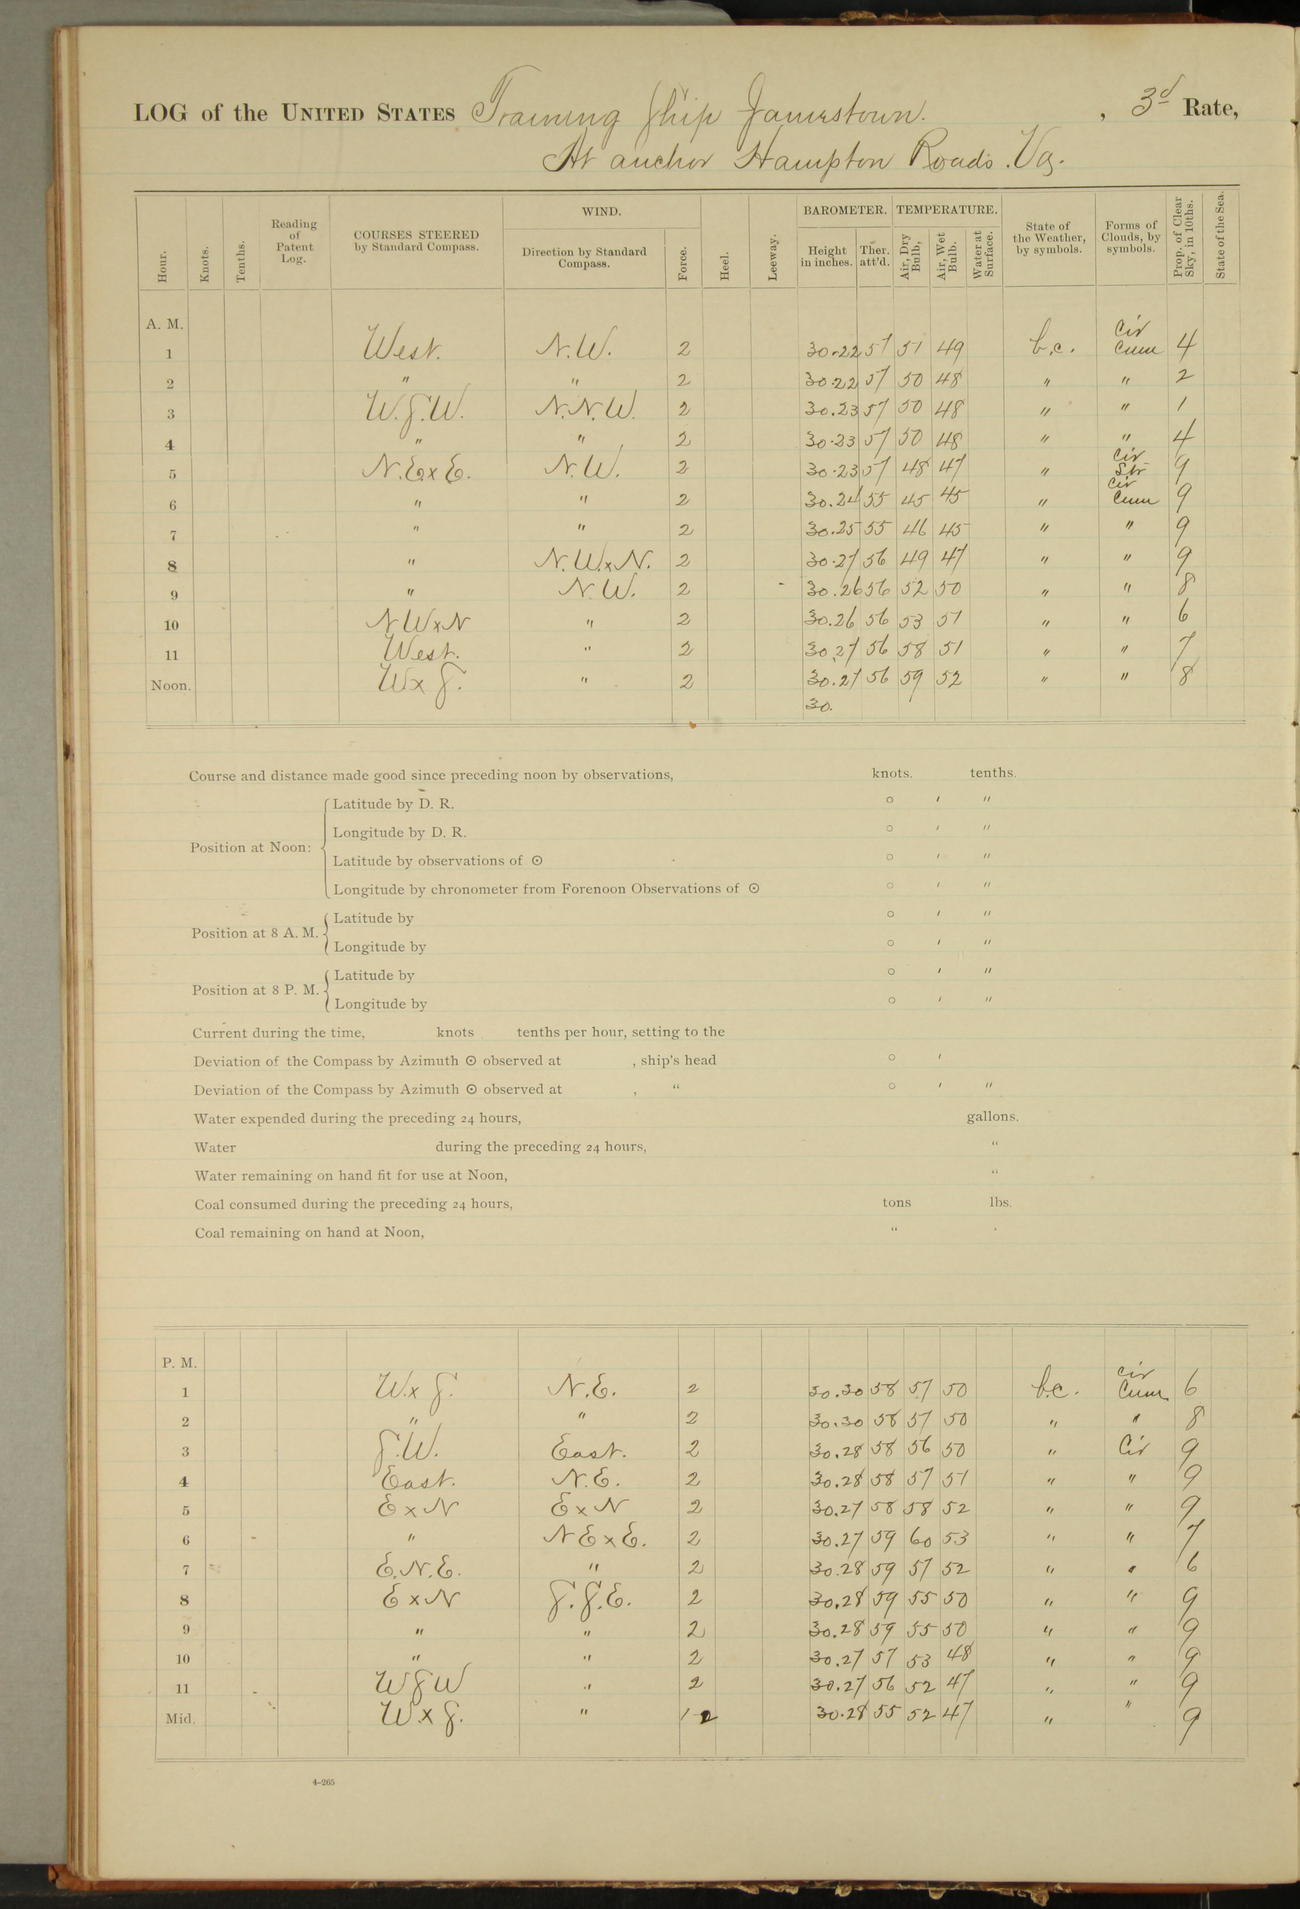 LOG of the UNITED STATES Training Ship Jamestown. , 3d Rate,
At anchor Hampton Roads. Va.
Hour. Knots. Tenths. Reading of Patent Log. COURSES STEERED by Standard Compass. WIND. Direction by Standard Compass. Force. Heel. Leeway. BAROMETER. Height in inches. Ther. att'd. TEMPERATURE. Air, Dry Bulb, Air, Wet Bulb. Water at Surface. State of the Weather, by symbols. Forms of Clouds, by symbols. Prop. of Clear Sky, in 10ths. State of the Sea.
A. M.
1 West. N.W. 2 30.22 57 51 49 b.c. Cir Cum 4
2 " " 2 30.22 57 50 48 " " 2
3 W.S.W. N.N.W. 2 30.23 57 50 48 " " 1
4 " " 2 30.23 57 50 48 " " 4
5 N.E x E. N.W. 2 30.23 57 48 47 " Cir Str 9
6 " " 2 30.24 55 45 45 " Cir Cum 9
7 " " 2 30.25 55 46 45 " " 9
8 " N.W. x N. 2 30.27 56 49 47 " " 9
9 " N.W. 2 30.26 56 52 50 " " 8
10 N W x N " 2 30.26 56 53 51 " " 6
11 West. " 2 30.27 56 58 51 " " 7
Noon. W x S. " 2 30.27 56 59 52 " " 8
30.
Course and distance made good since preceding noon by observations, knots. tenths.
Position at Noon: Latitude by D. R. ° ′ ″
Longitude by D. R. ° ′ ″
Latitude by observations of ⊙ ° ′ ″
Longitude by chronometer from Forenoon Observations of ⊙ ° ′ ″
Position at 8 A. M. Latitude by ° ′ ″
Longitude by ° ′ ″
Position at 8 P. M. Latitude by ° ′ ″
Longitude by ° ′ ″
Current during the time, knots tenths per hour, setting to the
Deviation of the Compass by Azimuth ⊙ observed at , ship's head ° ′
Deviation of the Compass by Azimuth ⊙ observed at , " ° ′ ″
Water expended during the preceding 24 hours, gallons.
Water during the preceding 24 hours, "
Water remaining on hand fit for use at Noon, "
Coal consumed during the preceding 24 hours, tons lbs.
Coal remaining on hand at Noon, " "
P. M.
1 W x S. N.E. 2 30.30 58 57 50 b.c. Cir Cum 6
2 " " 2 30.30 58 57 50 " " 8
3 S.W. East. 2 30.28 58 56 50 " Cir 9
4 East. N.E. 2 30.28 58 57 51 " " 9
5 E x N E x N 2 30.27 58 58 52 " " 9
6 " N E x E. 2 30.27 59 60 53 " " 7
7 E.N.E. " 2 30.28 59 57 52 " " 6
8 E x N S.S.E. 2 30.28 59 55 50 " " 9
9 " " 2 30.28 59 55 50 " " 9
10 " " 2 30.27 57 53 48 " " 9
11 W S W " 2 30.27 56 52 47 " " 9
Mid. W x S. " 1-2 30.28 55 52 47 " " 9
4-265